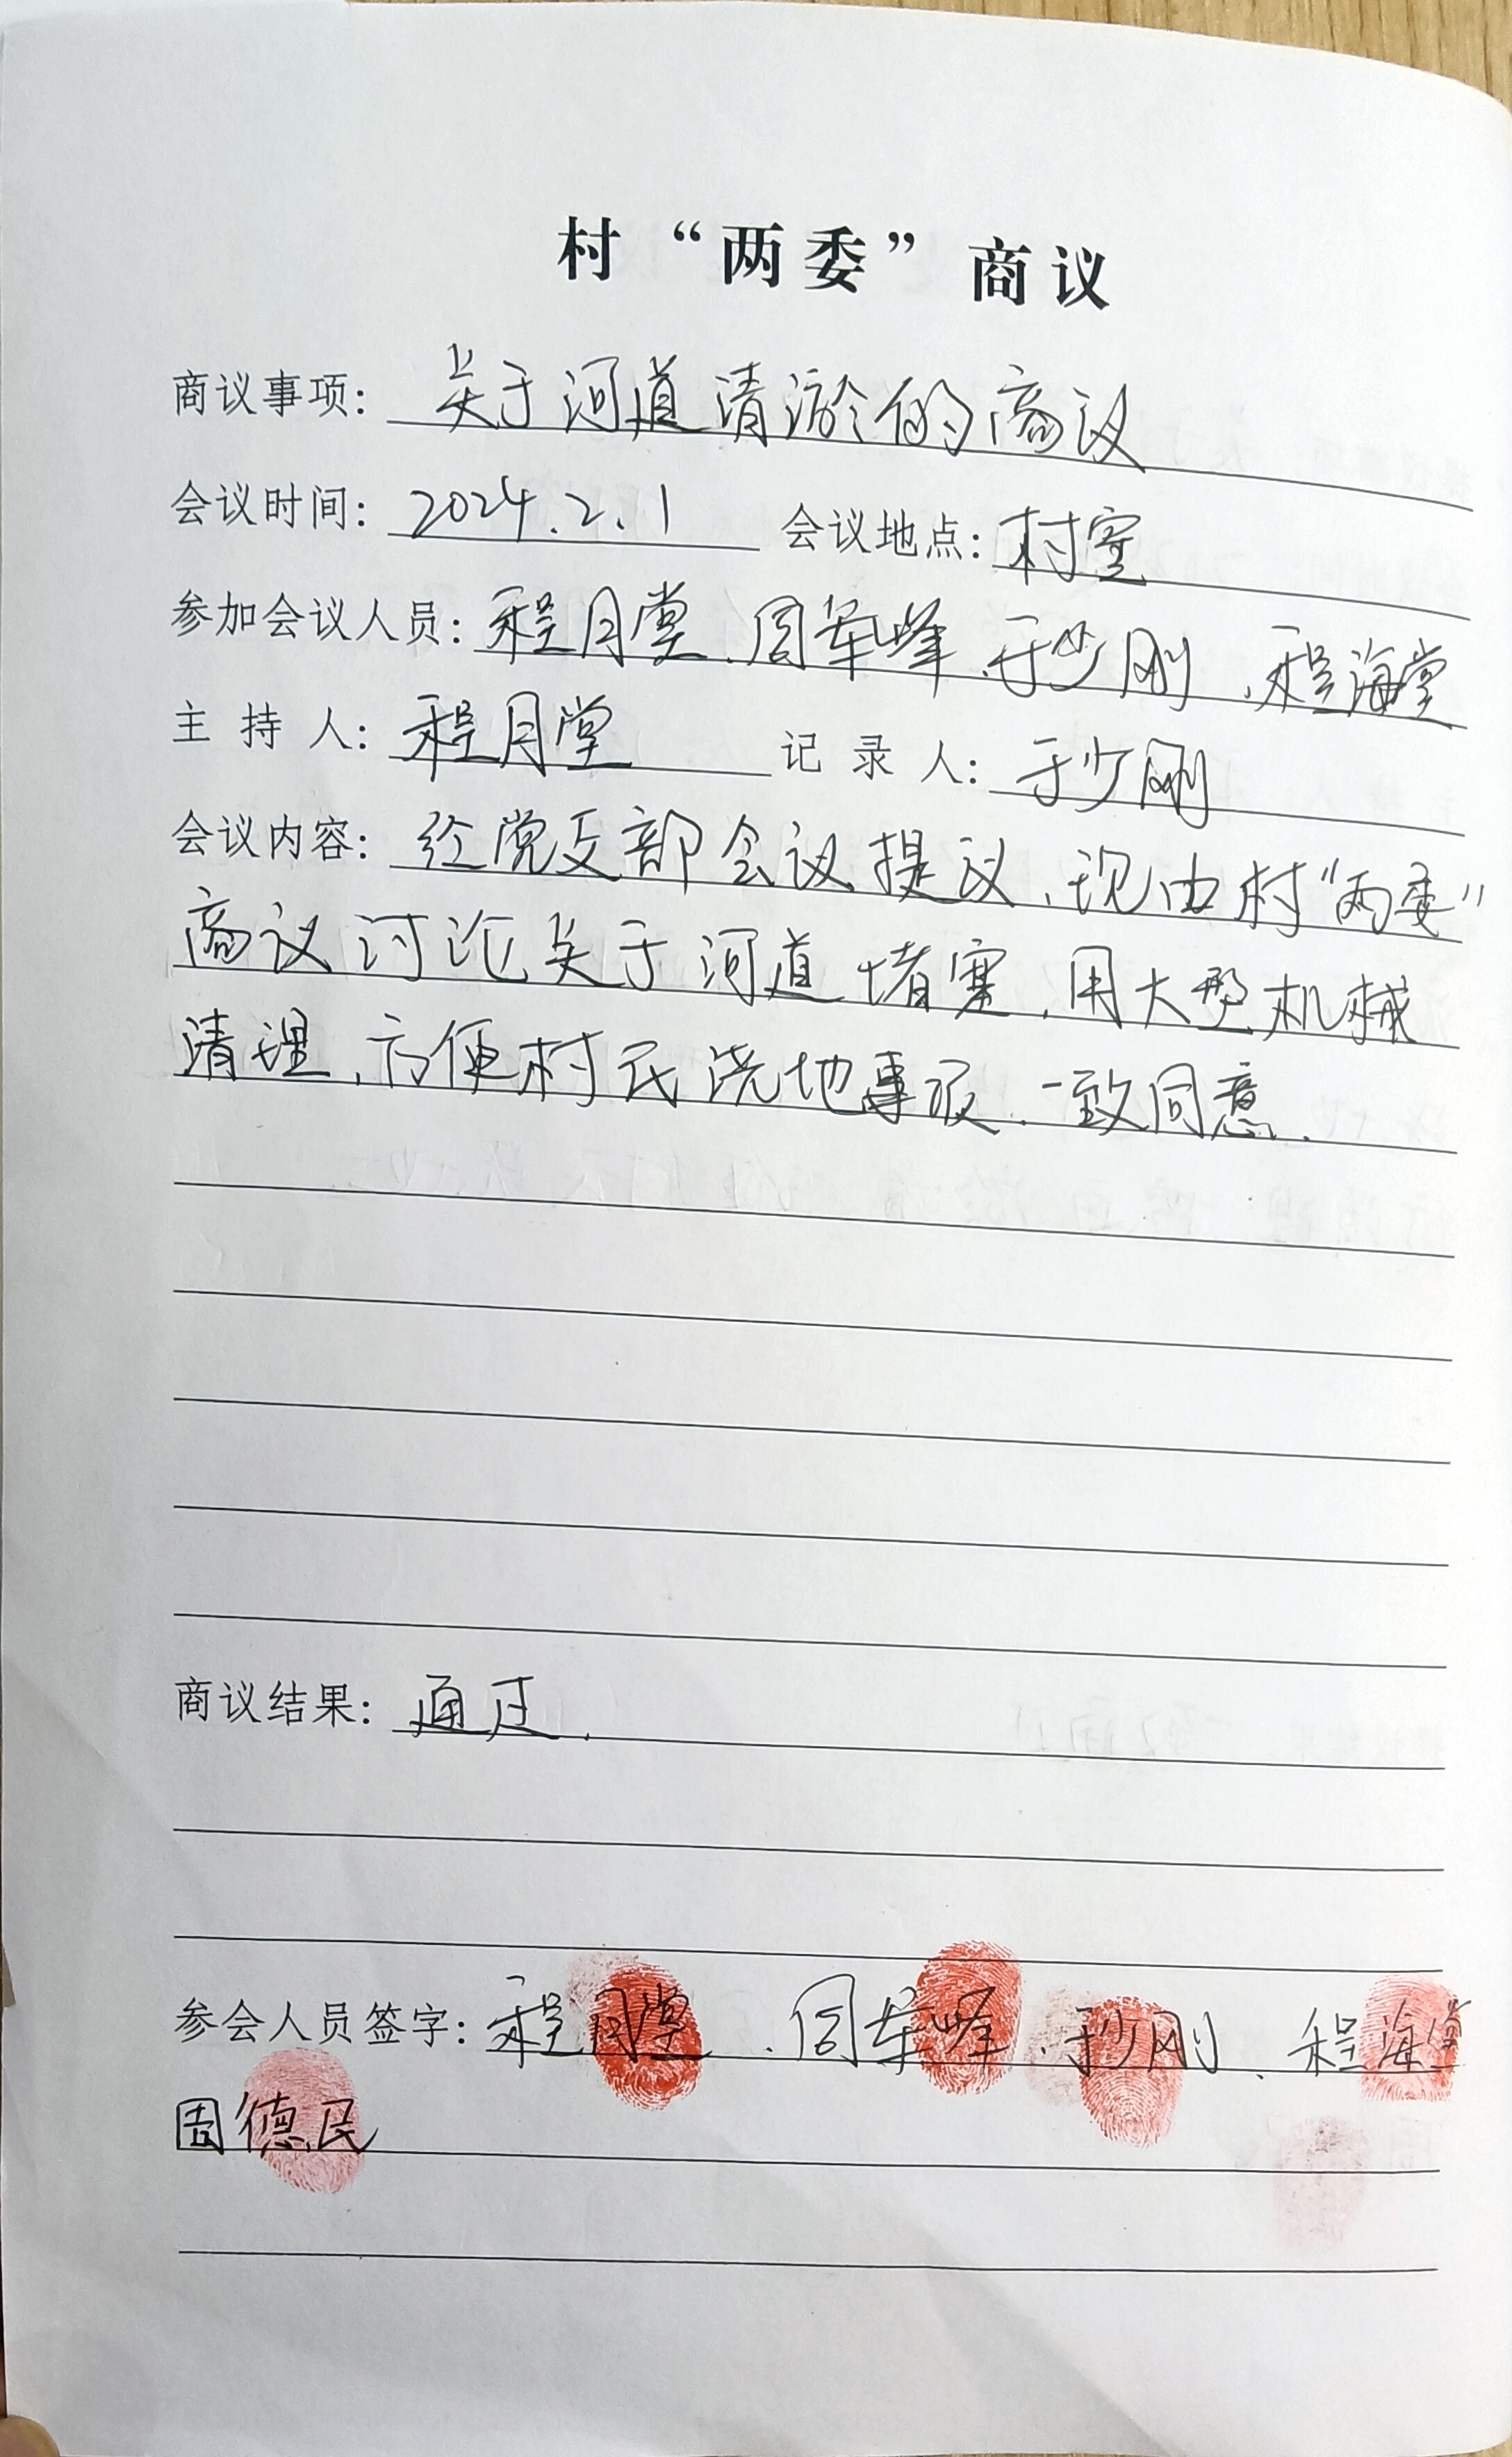 村“两委”商议
商议事项：关于河道清淤的商议
会议时间：2024.2.1 会议地点：村室
参加会议人员：程月堂、周军峰、于少刚、程海堂
主持人：程月堂 记录人：于少刚
会议内容：经党支部会议提议、现由村“两委”
商议讨论关于河道堵塞，用大型机械
清理，方便村民浇地事宜、一致同意.
商议结果：通过.
参会人员签字：程月堂、周军峰、于少刚、程海堂
周德民